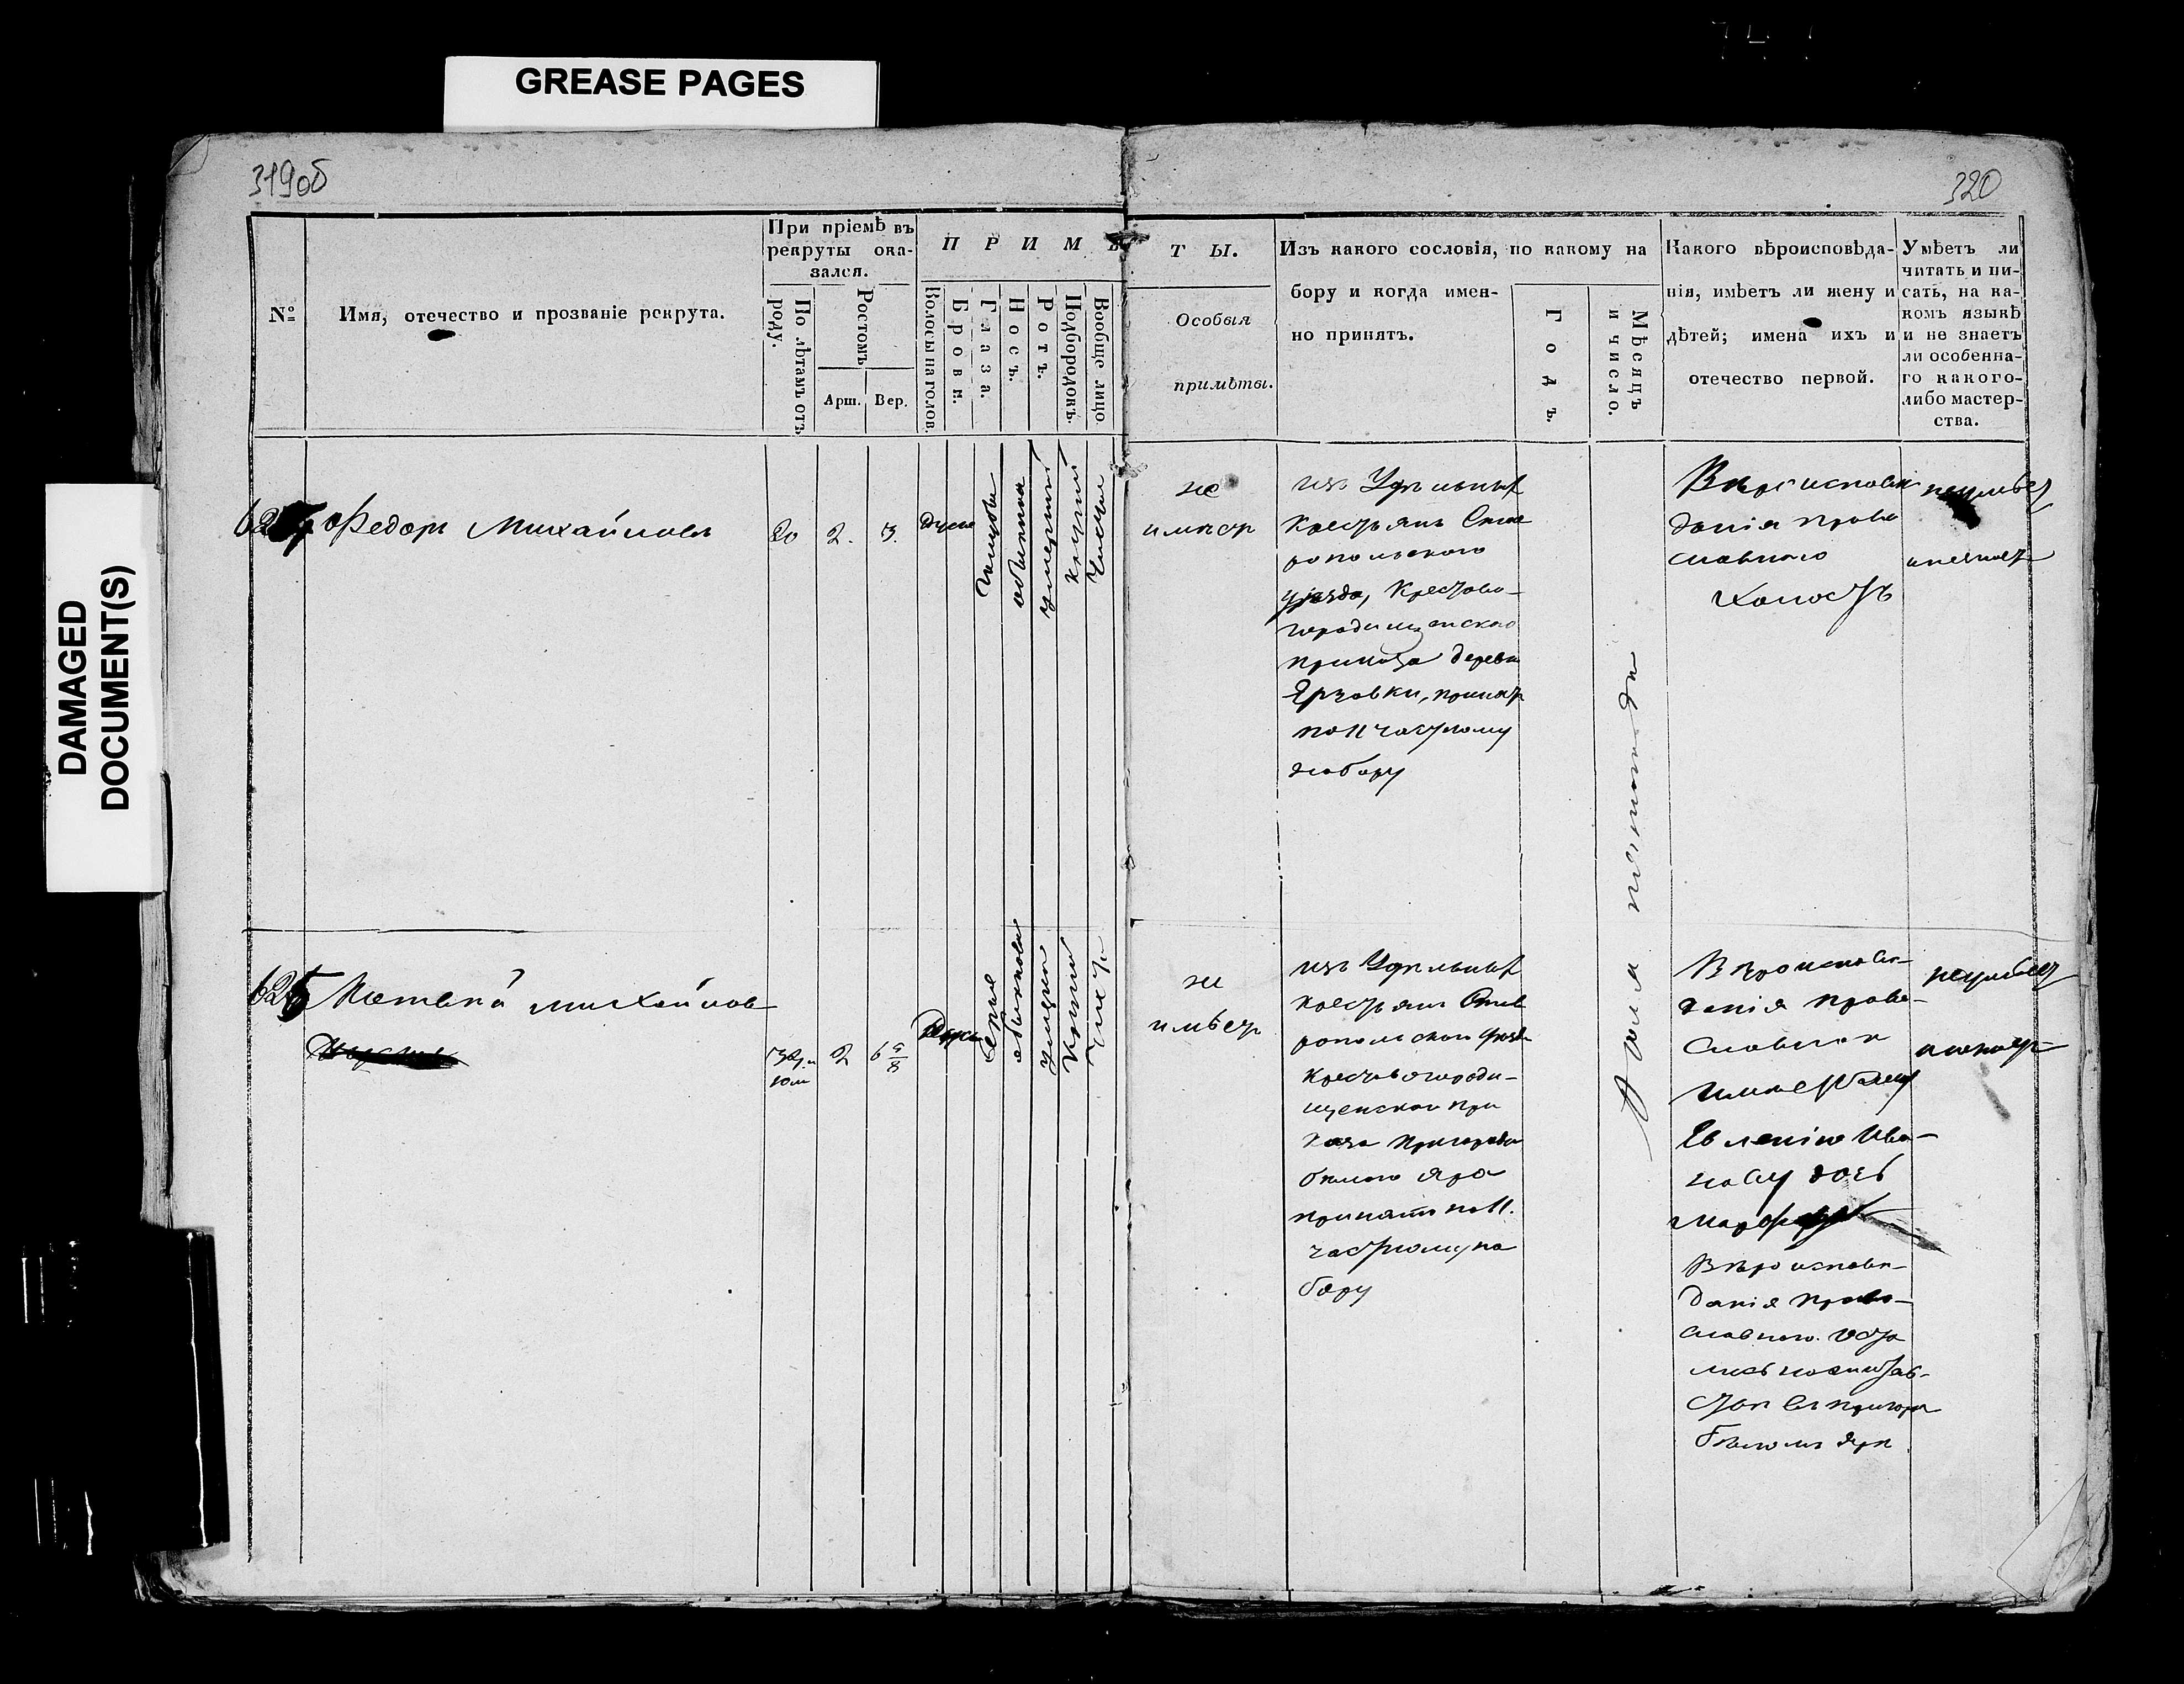 GREASE PAGES
DAMAGED
DOCUMENT(S)
319об
320
№
Имя, отечество и прозваніе рекрута.
При пріемѣ въ
рекруты ока-
зался.
По лѣтамъ отъ
роду.
Ростомъ
Арш.
Вер.
ПРИМѢ
Волосы на голов.
Брови.
Глаза.
Носъ.
Ротъ.
Подбородокъ.
Вообще лицо
ТЫ.
Особыя
примѣты.
Изъ какого сословія, по какому на
бору и когда имен-
но принятъ.
Годъ.
Мѣсяцъ
и число.
Какого вѣроисповѣда-
нія, имѣетъ ли жену и
дѣтей; имена ихъ и
отечество первой.
Умѣетъ ли
читать и пи-
сать, на ка-
комъ языкѣ
и не знаетъ
ли особенна-
го какого-
либо мастер-
ства.
Федоръ Михайловъ
20
2.
3.
русые
обыкнов
умеренный
круглый
чистое
не
имѣетъ
изъ Удѣльныхъ
крестьянъ Став
ропольскаго
уѣзда, Крестово-
городищенскаго
приказа деревни
Ярзовки, принятъ
по 11 частному
набору
Вѣроисповѣ
данія право
славнаго
холостъ
неумѣетъ
незнаетъ
Матвѣй Михайлов
2
6 5/8
русые
серые
обыкновен
умерен
круглый
чистое
не
имѣетъ
изъ Удѣльныхъ
крестьянъ Став
ропольскаго уѣзда
Крестовогороди-
щенскаго при
каза пригорода
белаго Яра
принятъ по 11.
частному на
бору
Вѣроисповѣ-
данія право-
славнаго
имѣетъ жену
Ива-
нову дочь
Вѣроисповѣ-
данія право-
славнаго.
пригор
бѣломъ Яре
неумѣетъ
незнаетъ